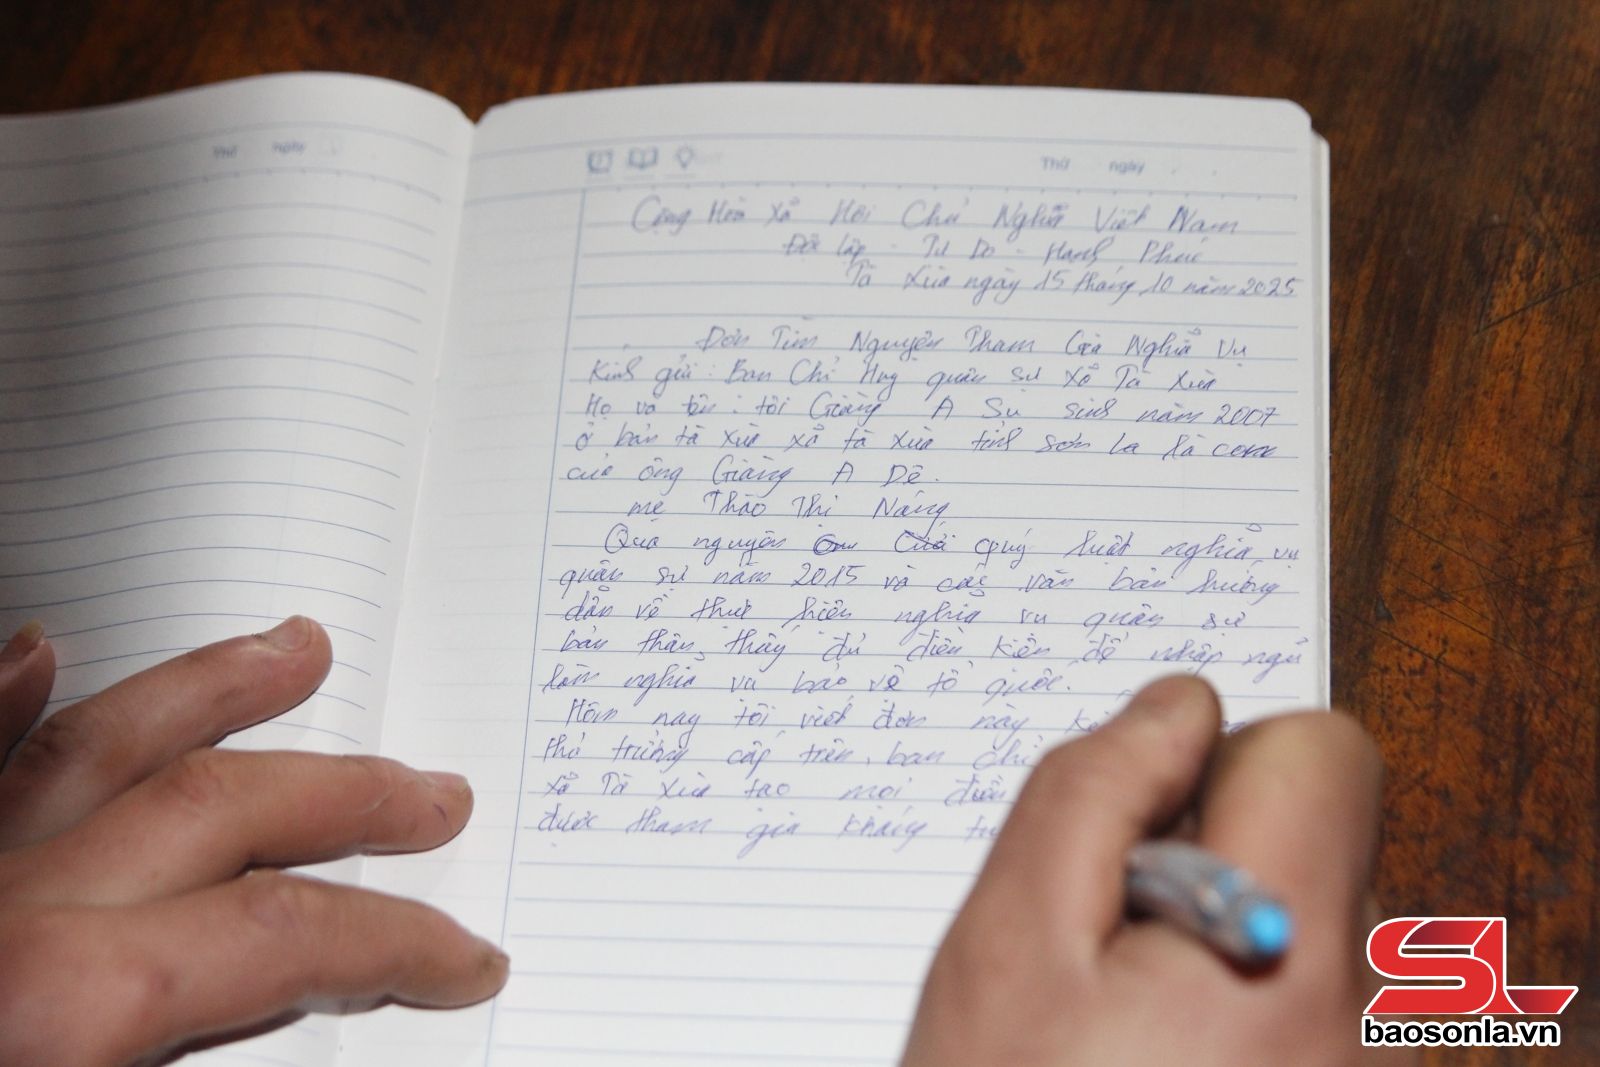 Thứ ngày
Thứ ngày
Cộng Hòa Xã Hội Chủ Nghĩa Việt Nam
Độc lập - Tự Do - Hạnh Phúc
Tà Xùa ngày 15 tháng 10 năm 2025
Đơn Tìn Nguyện Tham Gia Nghĩa Vụ
Kính gửi: Ban Chỉ Huy quân sự xã Tà Xùa
Họ và tên: tôi Giàng A Sự sinh năm 2007
ở bản tà xùa xã tà xùa tỉnh sơn La là con
của ông Giàng A Dê.
mẹ Thào Thị Náng
Qua nguyên quý luật nghĩa vụ
quân sự năm 2015 và các văn bản hướng
dẫn về thực hiện nghĩa vụ quân sự
bản thân thấy đủ điều kiện để nhập ngũ
làm nghĩa vụ bảo vệ tổ quốc.
Hôm nay tôi viết đơn này
thủ trưởng cấp trên, ban chỉ
xã Tà Xùa tạo mọi điều
được tham gia kháng
SL
baosonla.vn